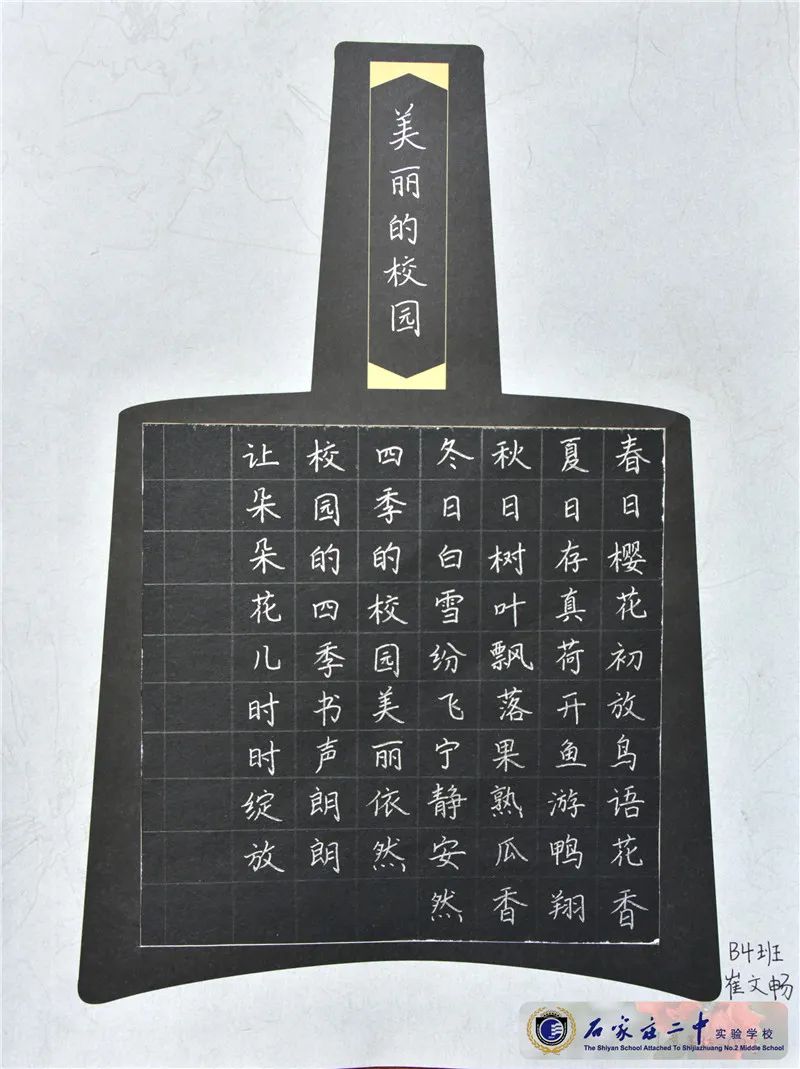 美丽的校园
春日樱花初放鸟语花香
夏日存真荷开鱼游鸭翔
秋日树叶飘落果熟瓜香
冬日白雪纷飞宁静安然
四季的校园美丽依然
校园的四季书声朗朗
让朵朵花儿时时绽放
B4班
崔文畅
石家庄二中实验学校
The Shiyan School Attached To Shijiazhuang No.2 Middle School